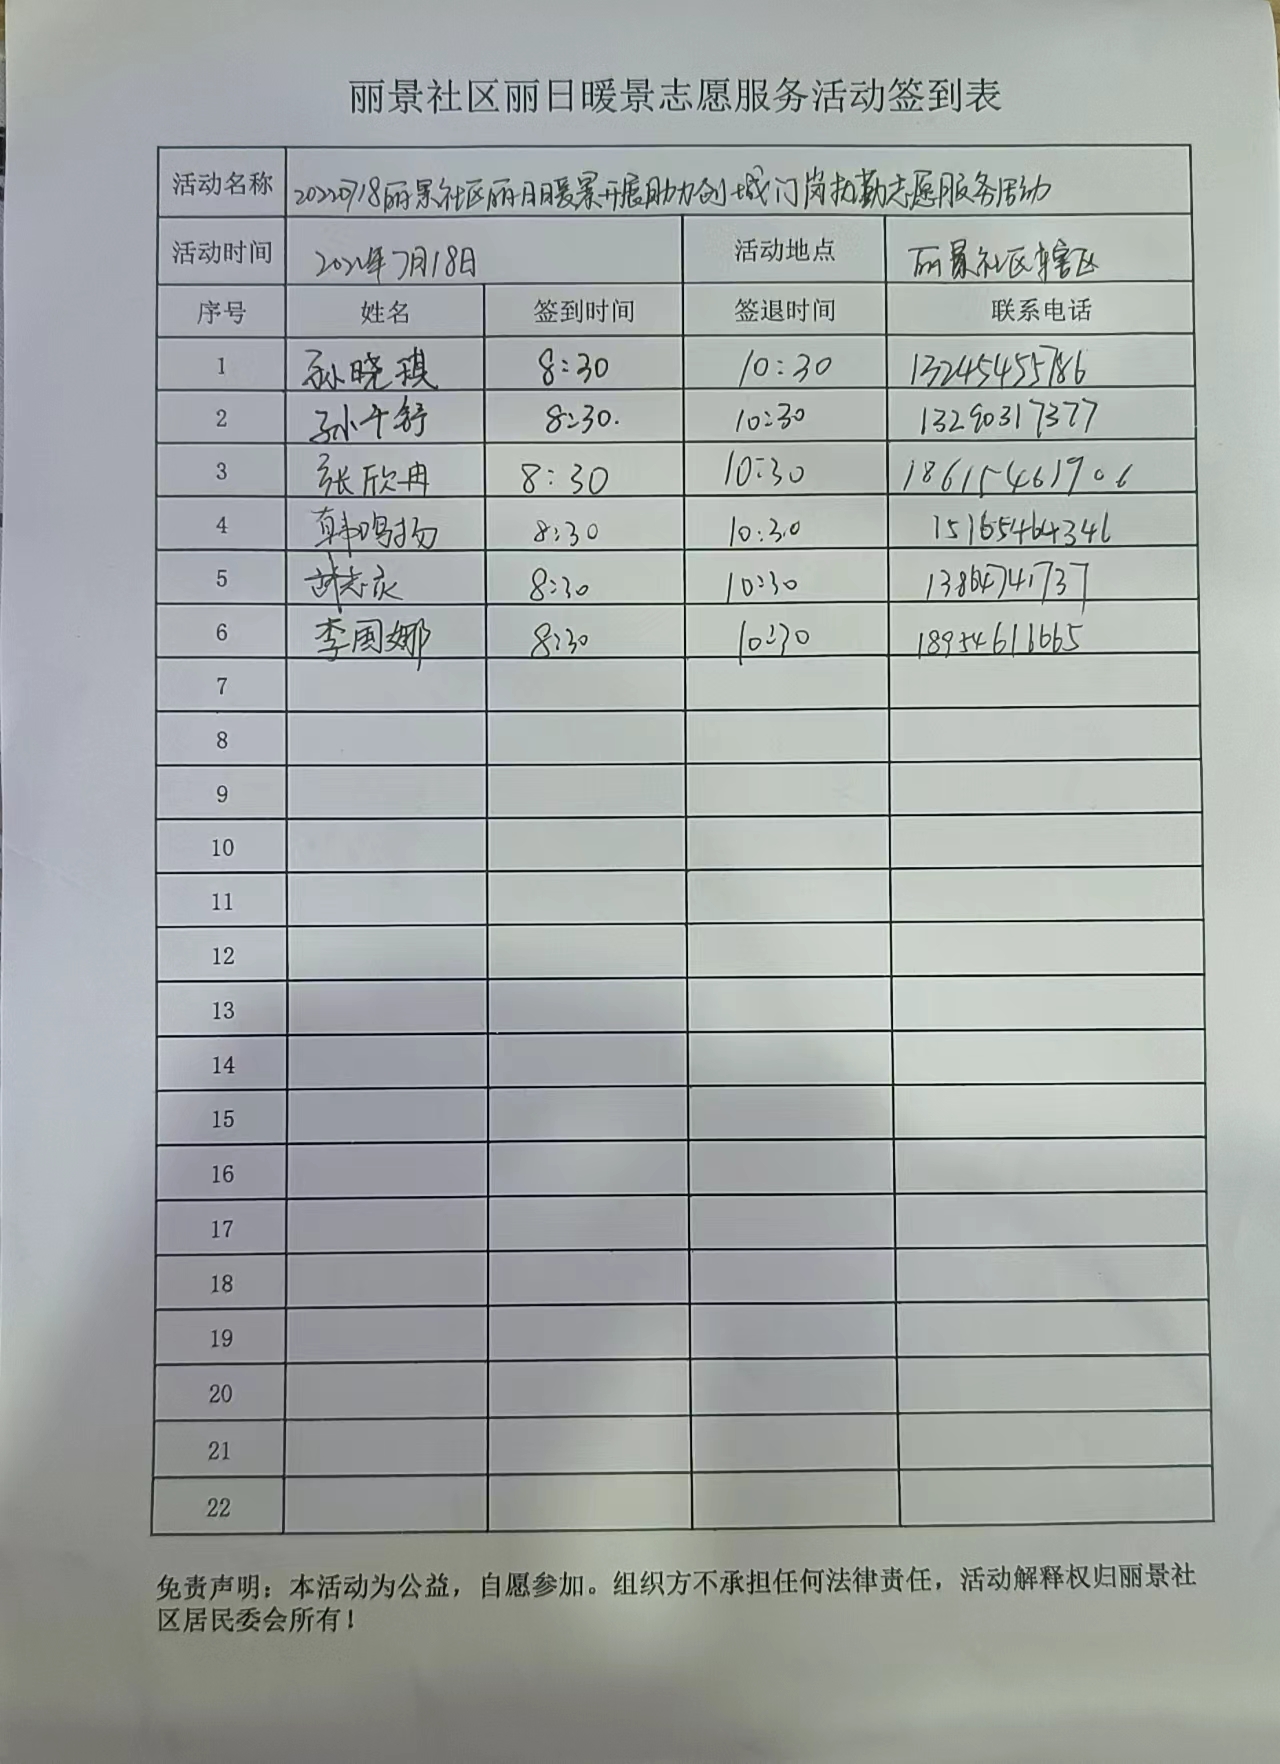 丽景社区丽日暖景志愿服务活动签到表
活动名称 20220718丽景社区丽日暖景开展助力创城门岗执勤志愿服务活动
活动时间 2022年7月18日 活动地点 丽景社区辖区
序号 姓名 签到时间 签退时间 联系电话
1 孙晓琪 8:30 10:30 13245455786
2 孙千舒 8:30. 10:30 13290317377
3 张欣冉 8:30 10:30 18615461906
4 韩鸣扬 8:30 10:30 15165464346
5 8:30 10:30 13864741737
6 李国娜 8:30 10:30 18954611665
7
8
9
10
11
12
13
14
15
16
17
18
19
20
21
22
免责声明：本活动为公益，自愿参加。组织方不承担任何法律责任，活动解释权归丽景社
区居民委会所有！